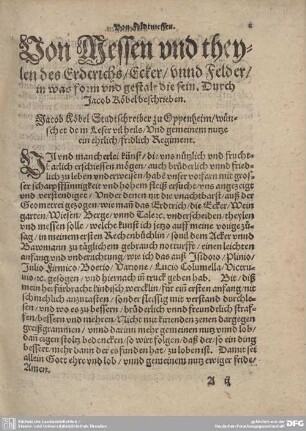 Von Feldtmessen.
Von Messen vnd they-
len des Erderichs/ Ecker/ vnnd Felder/
in was form vnd gestalt die sein. Durch
Jacob Köbel beschrieben.
Jacob Köbel Stadtschreiber zu Oppenheim/ wün-
schet dem Leser vil heils/ Vnd gemeinem nutze
ein ehrlich/ fridlich Regiment.
Vil vnd mancherlei künst/ die vns nützlich vnd frucht-
barlich erschiessen mögen/ auch brüderlich vnnd fried-
lich zu leben vnderweisen/ habē vnser vorfarn mit gros-
ser scharpffsinnigkeit vnd hohem fleiß ersucht/ vns angezeigt
vnd verstendiget/ Vnder denen nit die vnachtbarst/ auß der
Geometrei gezogen/ wie man das Erdrich/ die Ecker/ Wein
garten/ Wiesen/ Berge/ vnnd Tale/ vnderscheiden/ theylen
vnd messen solle/ welche kunst ich jetzo auff meine vorige zů-
sag/ in meinem ersten Rechenbüchlin/ sonder dem Acker vnnd
Bawman zu täglichem gebrauch notturfft/ einen leichten
anfang vnd vnderrichtung/ wie ich das auß Isidoro/ Plinio/
Julio Firmico/ Boetio/ Varrone/ Lucio Columella/ Victruui-
us/ gesogen/ vnd hiernach in truck geben hab. Bit/ diß
mein herfürbracht kindisch wercklin/ für ein ersten anfang/ nit
schmehlich anzutasten/ sonder fleissig mit verstand durchle-
sen/ vnd wo es zu bessern/ brüderlich vnnd freundtlich straf-
fen/ bessern vnd mehren/ Nicht mit zutunden zenen dargegen
greißgrammen/ vnnd darinn mehr gemeinen nutz vnnd lob/
dan eigen stoltz bedencken/ so wirt folgen/ daß der/ so ein ding
bessert/ mehr dann der es funden hat/ zu loben ist. Damit sei
allein Gott ehre vnd lob/ vnnd gemeinem nutz ewiger fride/
Amen.
A ij